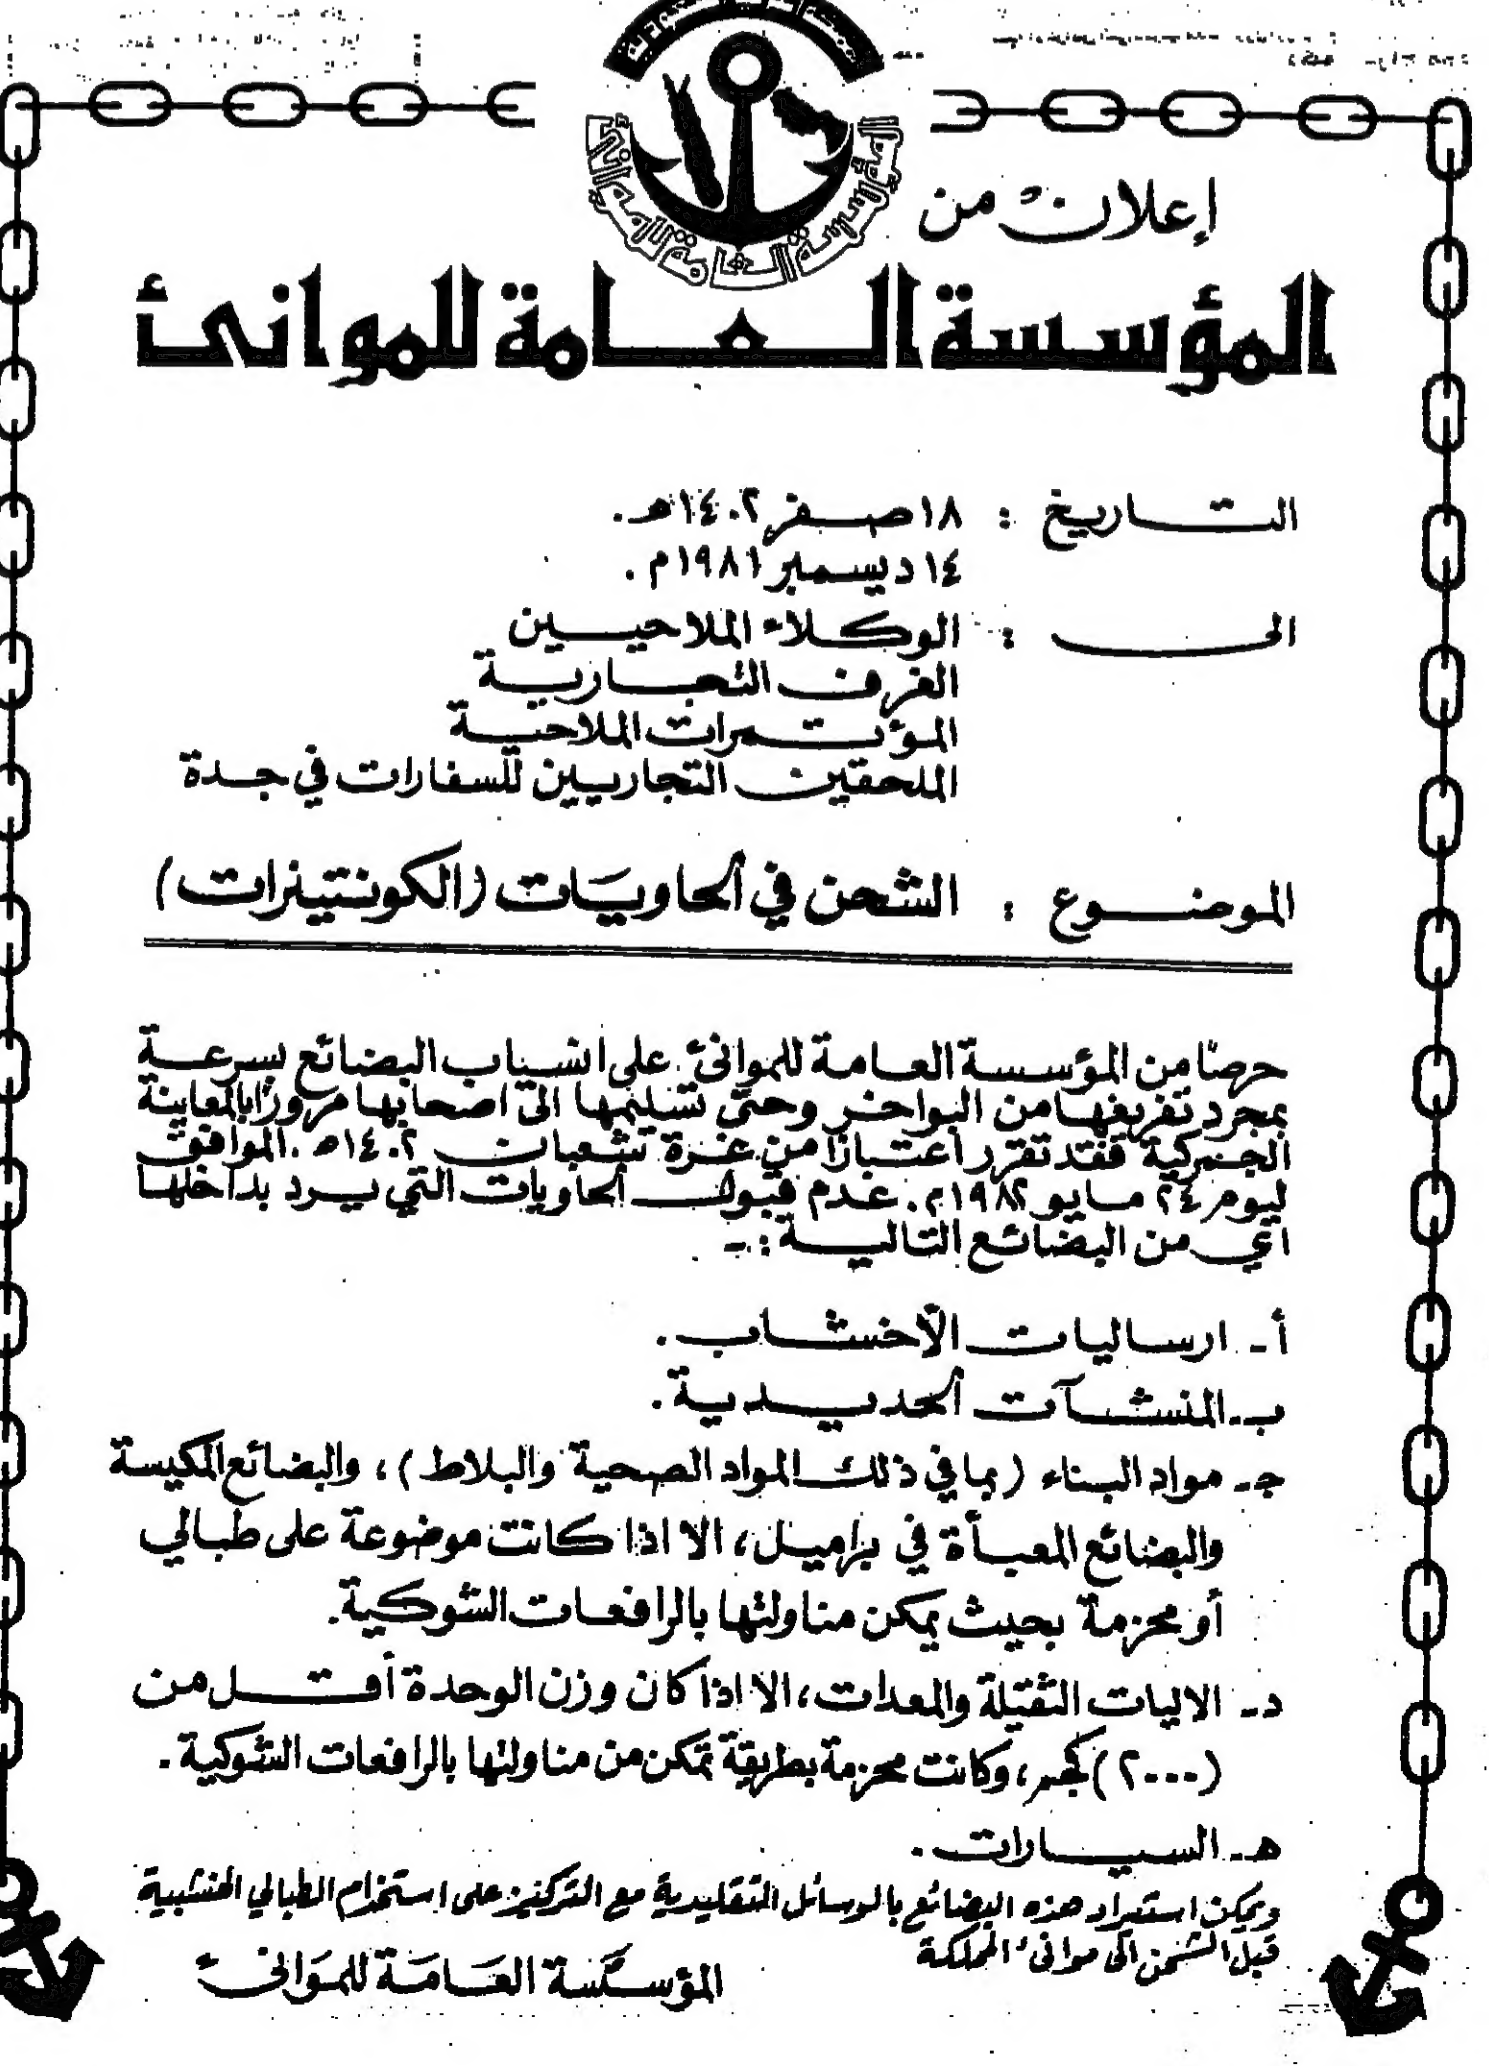 إعلان من
المؤسسة العامة للموانئ
التاريخ : ١٨ صفر ١٤٠٢هـ.
١٤ ديسمبر ١٩٨١م.
الى : الوكلاء الملاحيين
الغرف التجارية
المؤتمرات الملاحية
الملحقين التجاريين للسفارات في جدة
الموضوع : الشحن في الحاويات (الكونتينرات)
حرصًا من المؤسسة العامة للموانئ على انسياب البضائع بسرعة
بمجرد تفريغها من البواخر وحتى تسليمها الى اصحابها مرورًا بالمعاينة
الجمركية فقد تقرر اعتبارًا من غرة شعبان ١٤٠٢هـ. الموافق
ليوم ٢٤ مايو ١٩٨٢م. عدم قبول الحاويات التي يرد بداخلها
اي من البضائع التالية :-
أ- ارساليات الأخشاب.
ب- المنشآت الحديدية.
جـ- مواد البناء (بما في ذلك المواد الصحية والبلاط)، والبضائع المكيسة
والبضائع المعبأة في براميل، الا اذا كانت موضوعة على طبالي
أو محزمة بحيث يمكن مناولتها بالرافعات الشوكية.
د- الاليات الثقيلة والمعدات، الا اذا كان وزن الوحدة أقل من
(٢٠٠٠) كجم، وكانت محزمة بطريقة تمكن من مناولتها بالرافعات الشوكية.
هـ- السيارات.
ويمكن استيراد هذه البضائع بالوسائل التقليدية مع التركيز على استخدام الطبالي الخشبية
قبل الشحن الى موانئ المملكة
المؤسسة العامة للموانئ